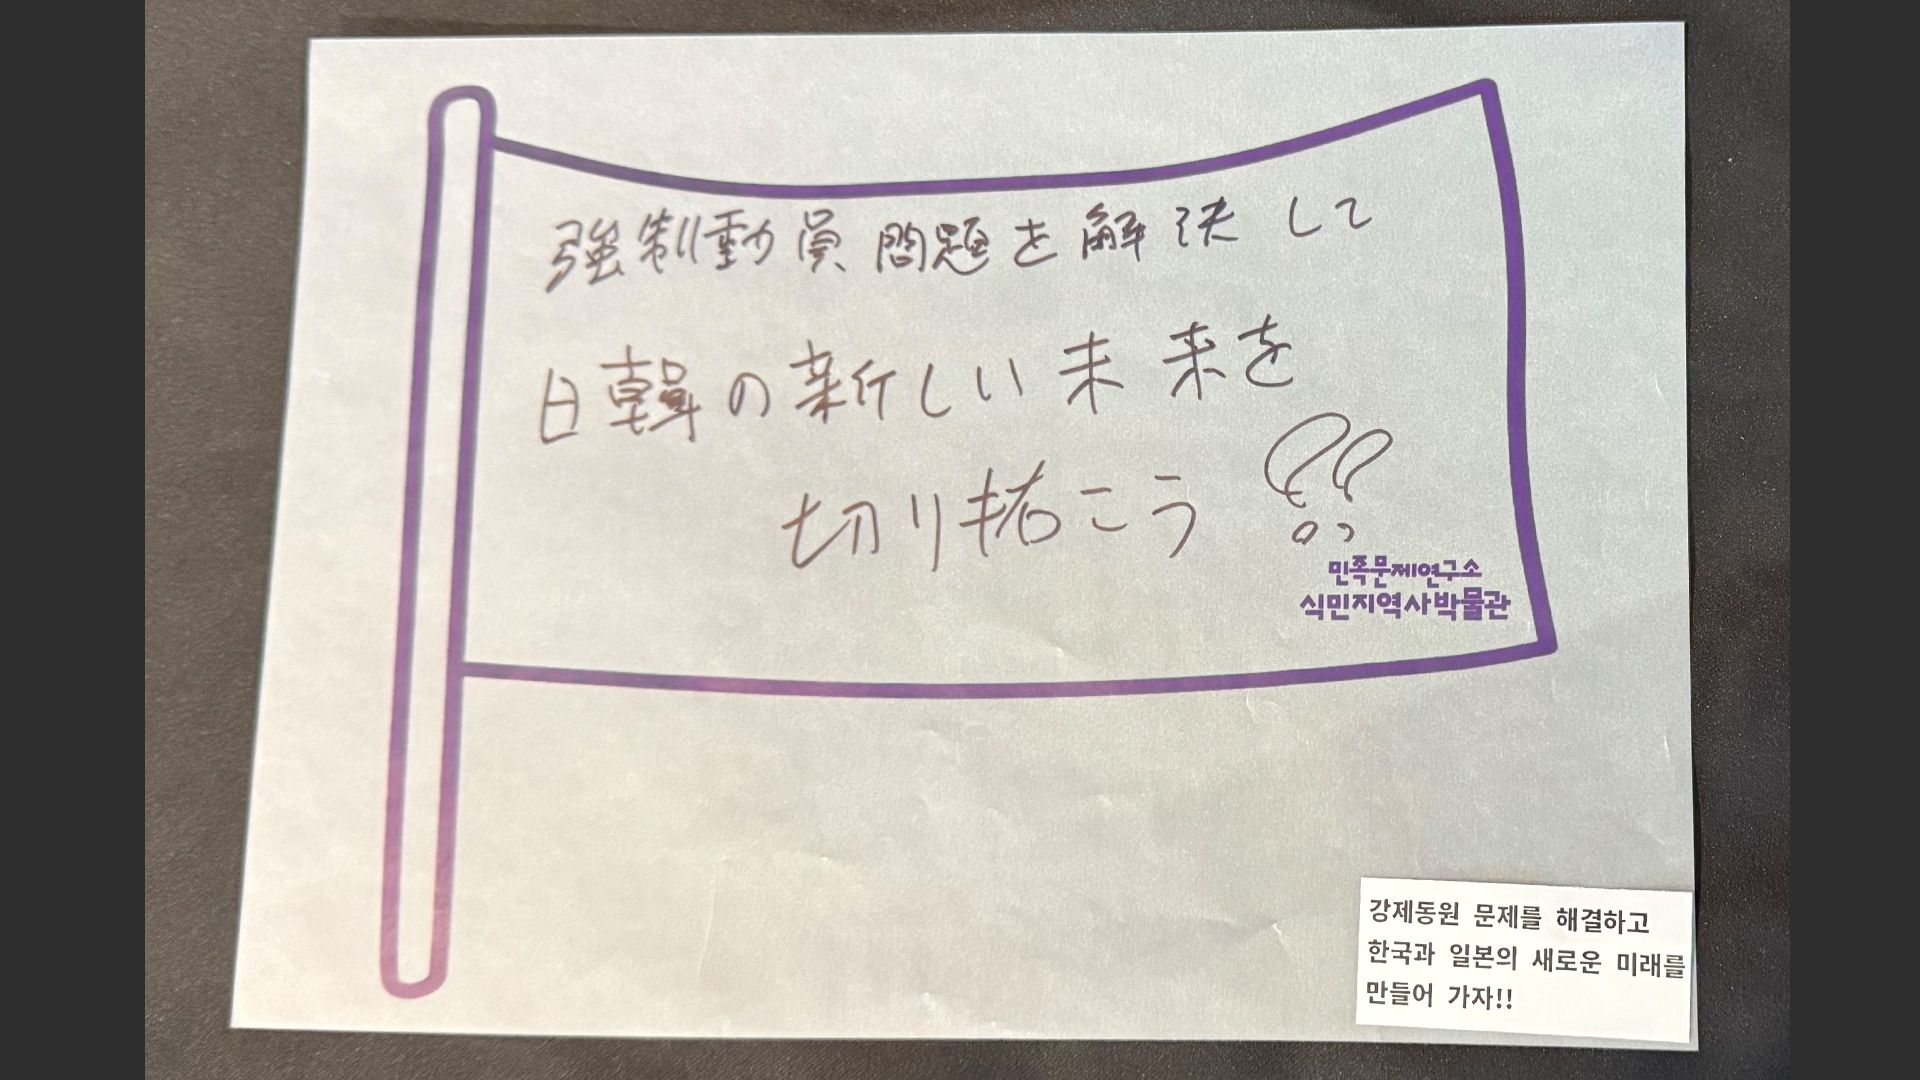 強制動員問題を解決して
日韓の新しい未来を
切り拓こう!!
민족문제연구소
식민지역사박물관
강제동원 문제를 해결하고
한국과 일본의 새로운 미래를
만들어 가자!!